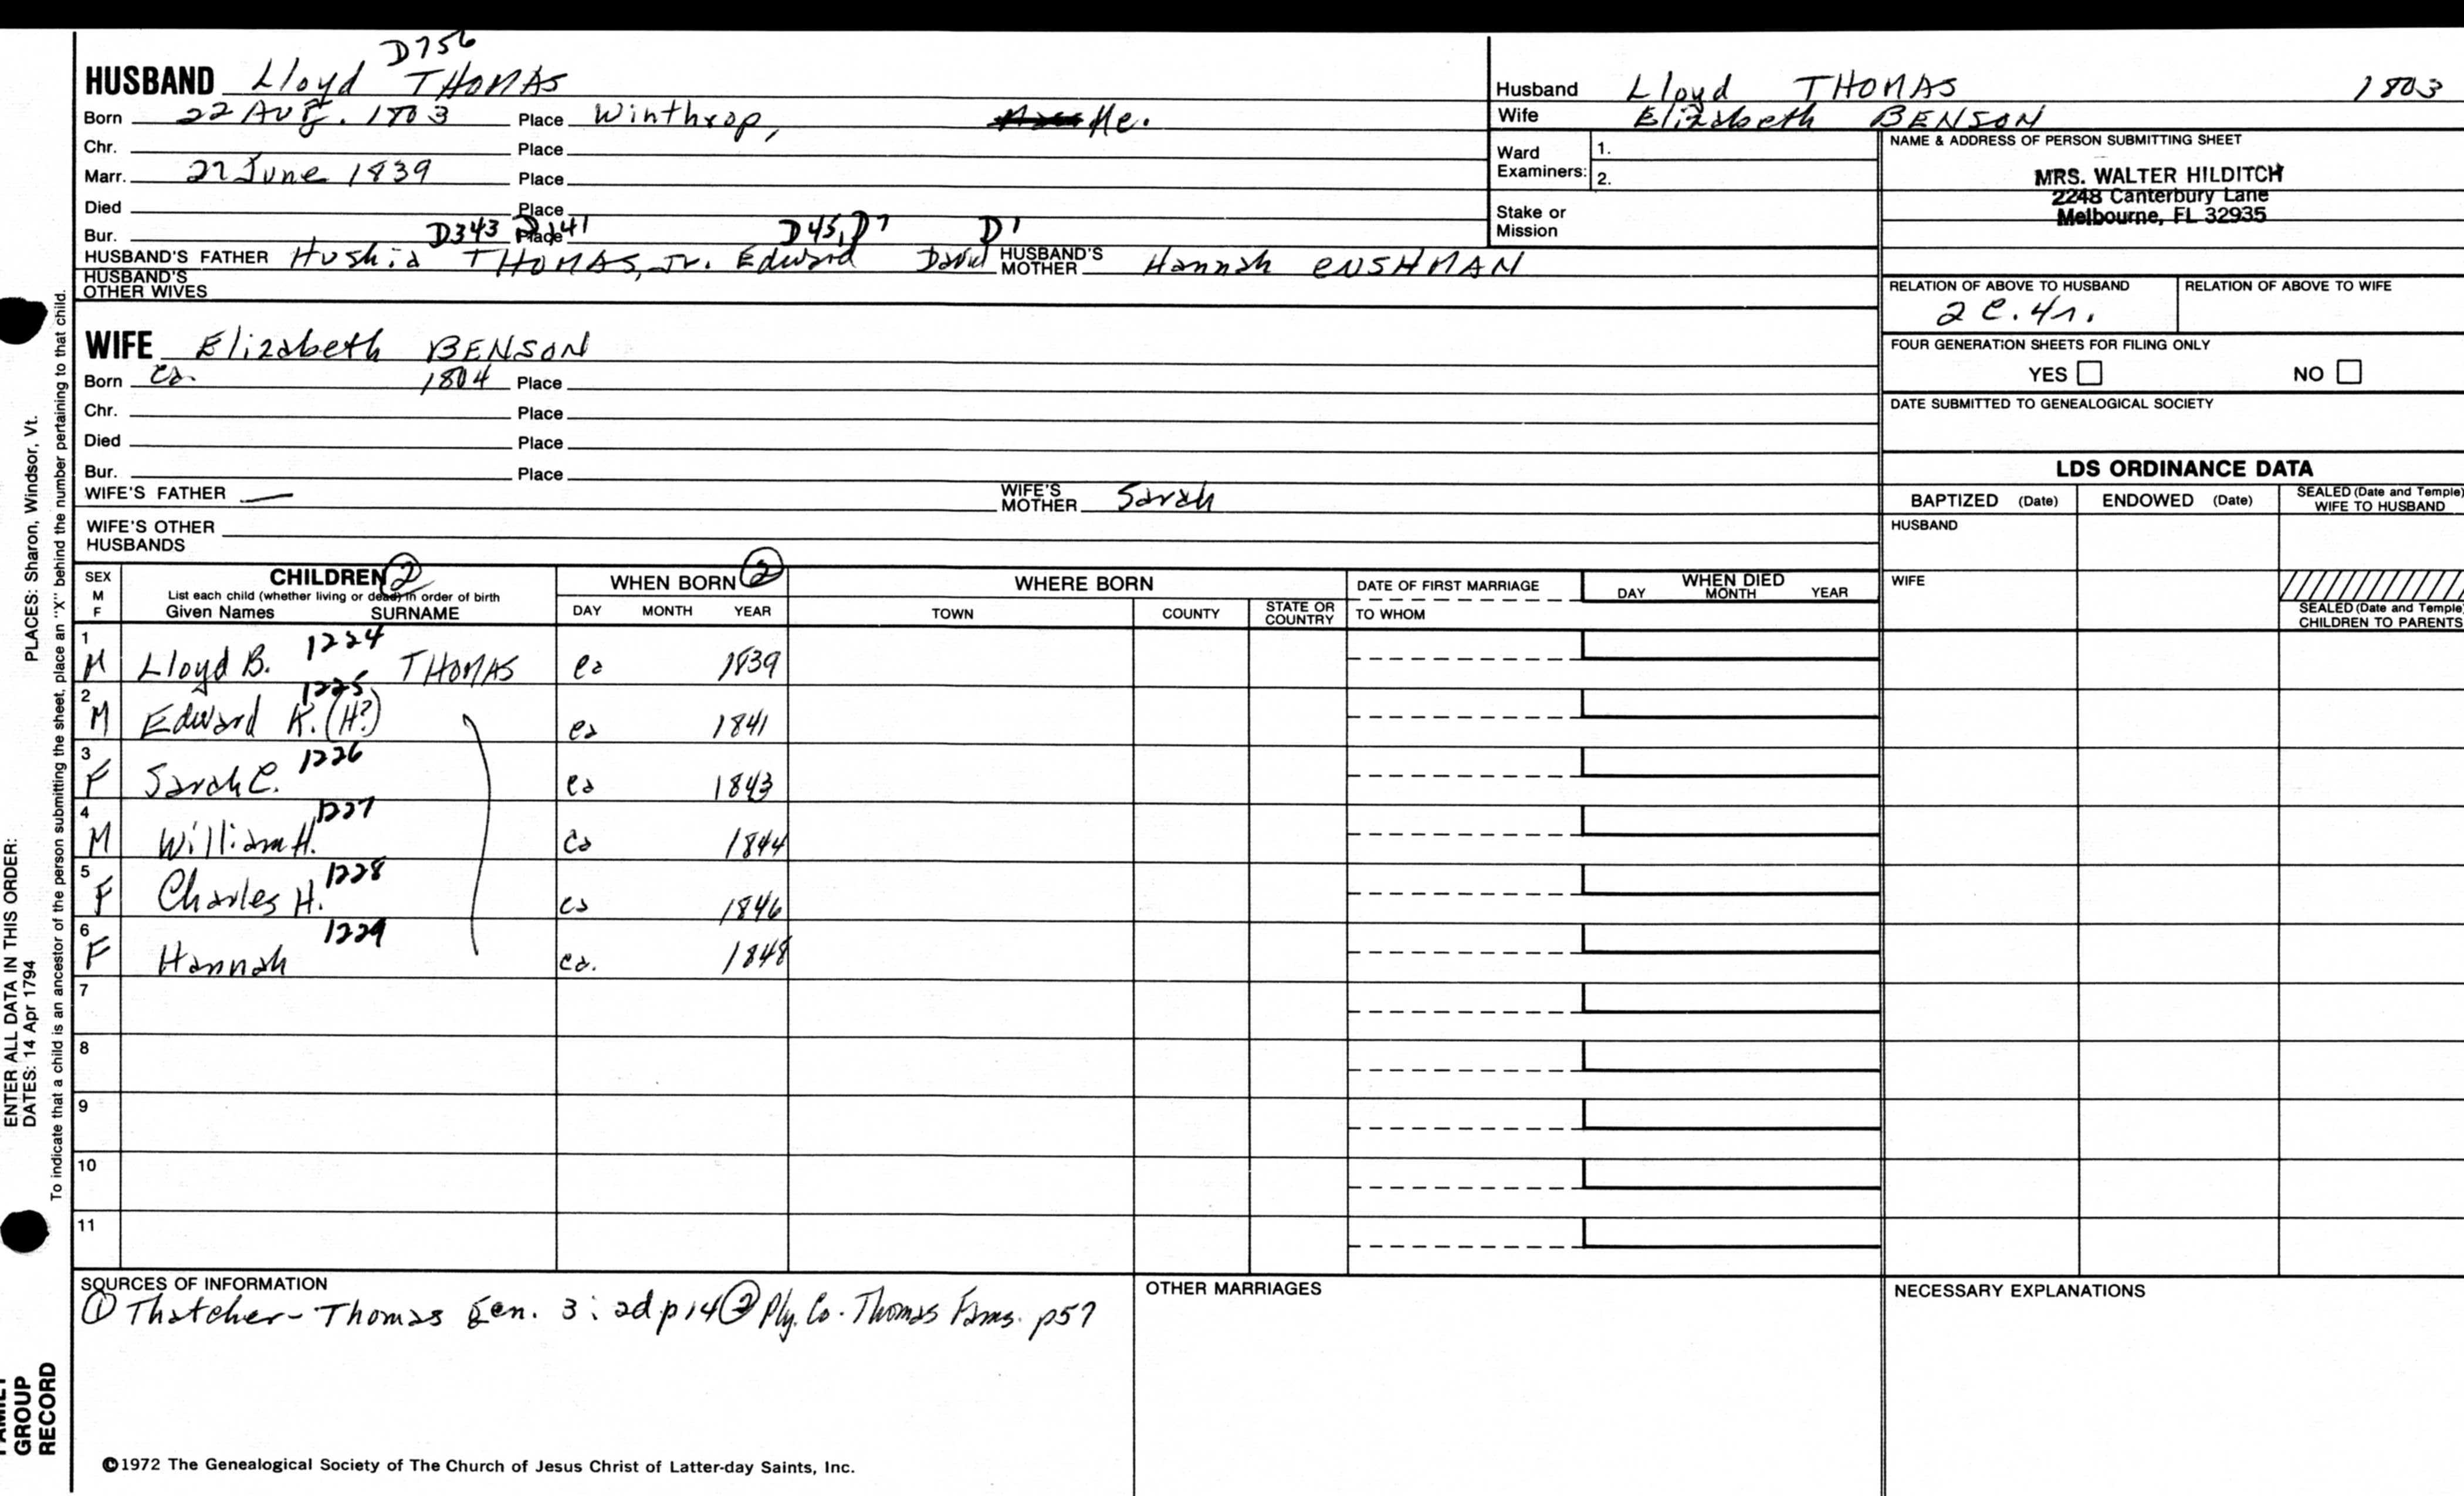 D756
HUSBAND Lloyd THOMAS
Born 22 Aug. 1803 Place Winthrop, Me.
Chr. Place
Marr. 27 June 1839 Place
Died Place
Bur. Place
D343 D141 D45, D7 D1
HUSBAND'S FATHER Hushia THOMAS, Jr. Edward David HUSBAND'S MOTHER Hannah CUSHMAN
HUSBAND'S OTHER WIVES
WIFE Elizabeth BENSON
Born ca. 1804 Place
Chr. Place
Died Place
Bur. Place
WIFE'S FATHER — WIFE'S MOTHER Sarah
WIFE'S OTHER HUSBANDS
Husband Lloyd THOMAS 1803
Wife Elizabeth BENSON
Ward Examiners: 1.
2.
Stake or Mission
NAME & ADDRESS OF PERSON SUBMITTING SHEET
MRS. WALTER HILDITCH
2248 Canterbury Lane
Melbourne, FL 32935
RELATION OF ABOVE TO HUSBAND RELATION OF ABOVE TO WIFE
2 C. 4r.
FOUR GENERATION SHEETS FOR FILING ONLY
YES NO
DATE SUBMITTED TO GENEALOGICAL SOCIETY
LDS ORDINANCE DATA
BAPTIZED (Date) ENDOWED (Date) SEALED (Date and Temple) WIFE TO HUSBAND
HUSBAND
WIFE
SEALED (Date and Temple) CHILDREN TO PARENTS
SEX M F CHILDREN 2 WHEN BORN 2 WHERE BORN DATE OF FIRST MARRIAGE WHEN DIED
List each child (whether living or dead) in order of birth
Given Names SURNAME DAY MONTH YEAR TOWN COUNTY STATE OR COUNTRY TO WHOM DAY MONTH YEAR
1 M Lloyd B. 1224 THOMAS ca 1839
2 M Edward K. (H?) 1225 ca 1841
3 F Sarah C. 1226 ca 1843
4 M William H. 1227 ca 1844
5 F Charles H. 1228 ca 1846
6 F Hannah 1229 ca. 1848
7
8
9
10
11
SOURCES OF INFORMATION
① Thatcher-Thomas Gen. 3: ad p14 ② Ply. Co. Thomas Fams. p57
OTHER MARRIAGES
NECESSARY EXPLANATIONS
©1972 The Genealogical Society of The Church of Jesus Christ of Latter-day Saints, Inc.
GROUP
RECORD
ENTER ALL DATA IN THIS ORDER:
DATES: 14 Apr 1794 PLACES: Sharon, Windsor, Vt.
To indicate that a child is an ancestor of the person submitting the sheet, place an "X" behind the number pertaining to that child.